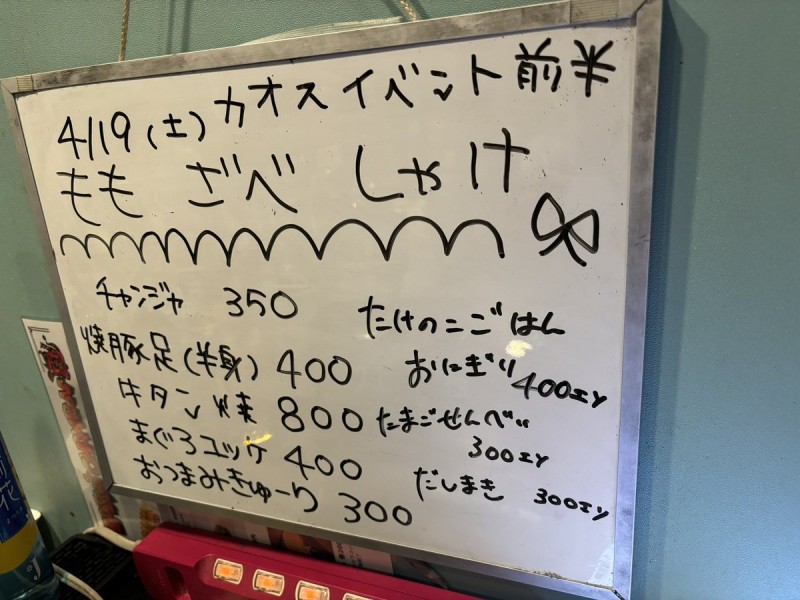 4/19(土)カオスイベント前半
ももざべしゃけ
チャンジャ 350
焼豚足(半身) 400
牛タン焼 800
まぐろユッケ 400
おつまみきゅーり 300
たけのこごはん
おにぎり
400エン
たまごせんべい
300エン
だしまき 300エン
花